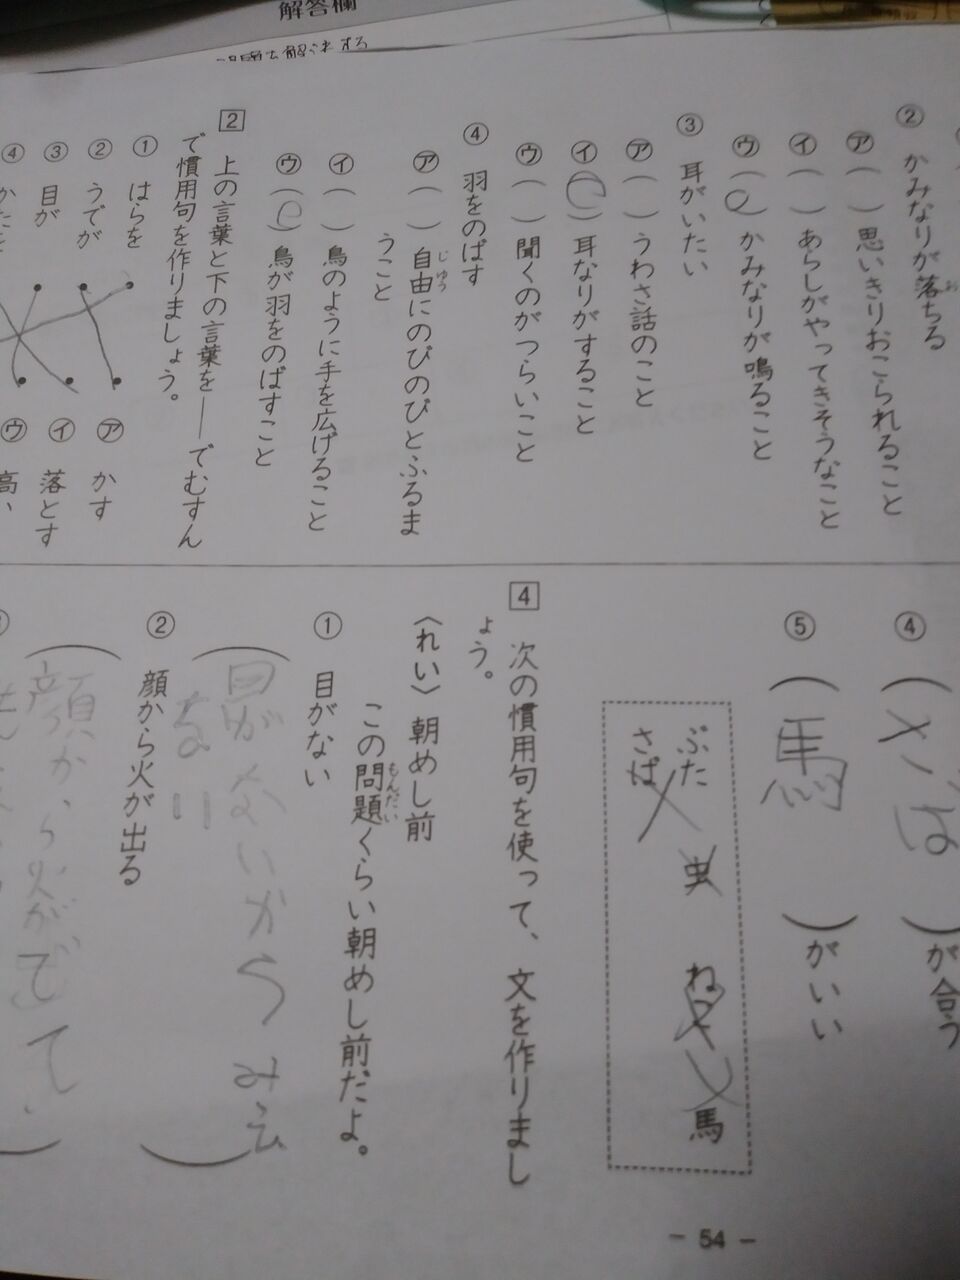 解答欄
② かみなりが落ちる
㋐( )思いきりおこられること
㋑( )あらしがやってきそうなこと
㋒( )かみなりが鳴ること
③ 耳がいたい
㋐( )うわさ話のこと
㋑( )耳なりがすること
㋒( )聞くのがつらいこと
④ 羽をのばす
㋐( )自由にのびのびとふるま
じゆう
うこと
㋑( )鳥のように手を広げること
㋒( )鳥が羽をのばすこと
2 上の言葉と下の言葉を――でむすん
で慣用句を作りましょう。
① はらを
② うでが
③ 目が
④
㋐ かす
㋑ 落とす
㋒ 高い
④( )が合う
⑤(馬)がいい
ぶた 虫 ねこ 馬
さば
4 次の慣用句を使って、文を作りまし
ょう。
〈れい〉朝めし前
この問題くらい朝めし前だよ。
もんだい
① 目がない
(目がないからみえ
ない)
② 顔から火が出る
(顔から火がでて
- 54 -